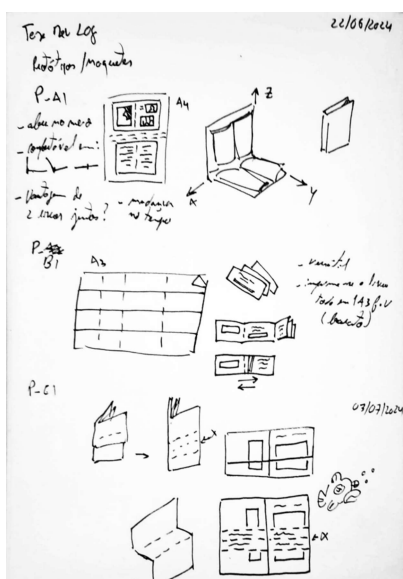 22/06/2024
Tese Mar Log
Protótipos / Maquetes
P_A1
A4
- abre no meio
- confortável em:
Z
X
Y
- Vantagem de
2 livros juntos?
- mudança
no tempo
P_
B1
A3
- versátil
- imprime-se o livro
todo em 1 A3 f.v
P_C1
07/07/2024
X
X